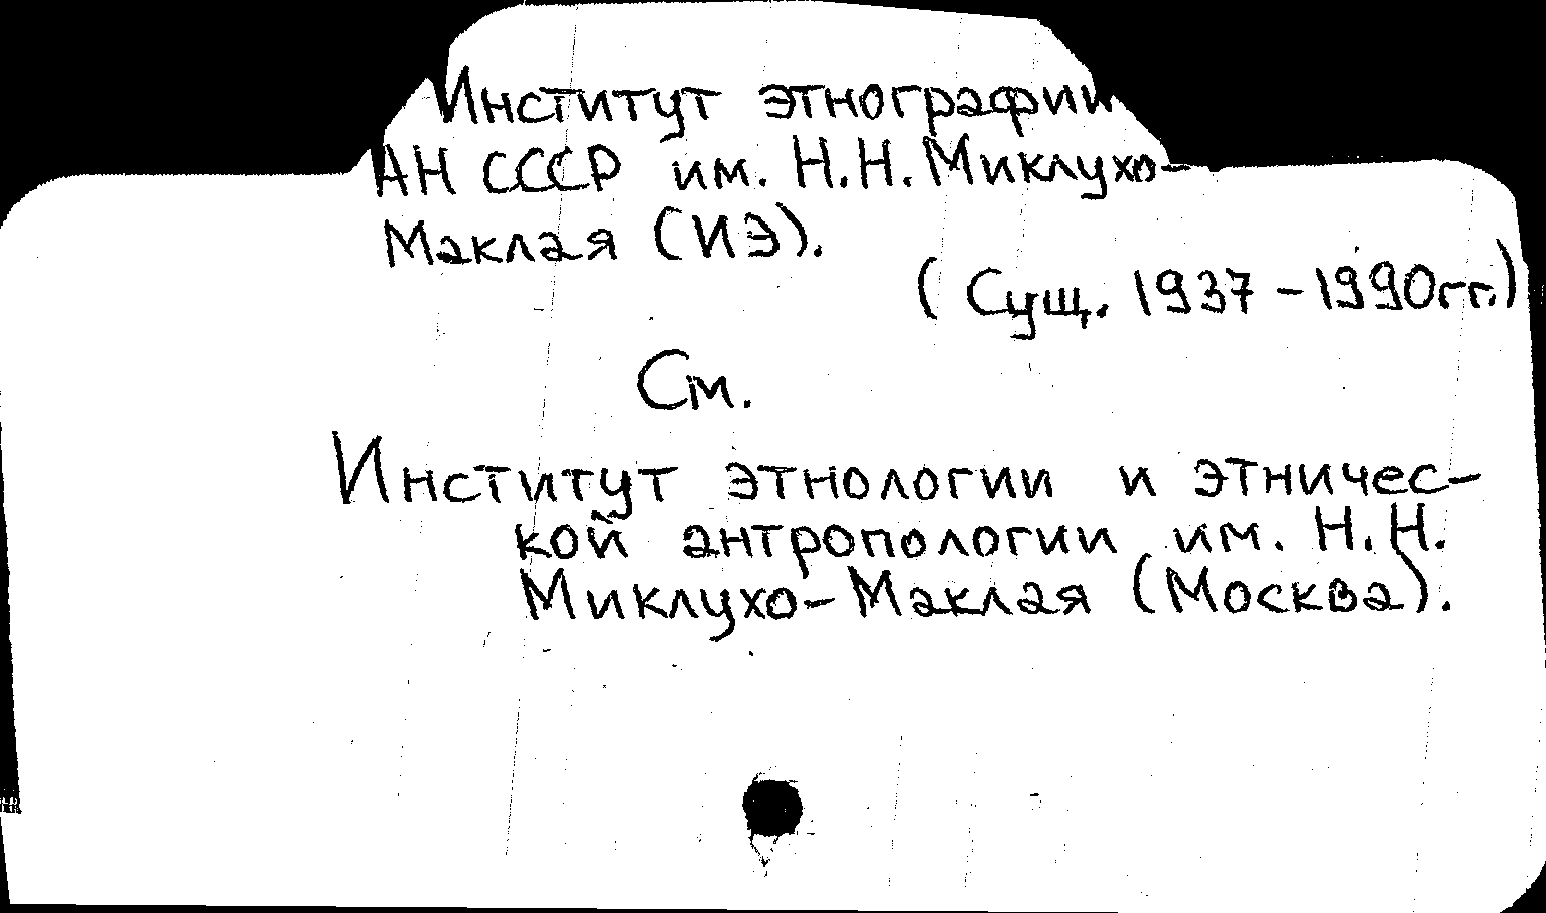 Институт этнографии
АН СССР им. Н.Н. Миклухо-
Маклая (ИЭ).
(Сущ. 1937-1990гг.)
См.
Институт этнологии и этничес-
кой антропологии им. Н.Н.
Миклухо-Маклая (Москва).